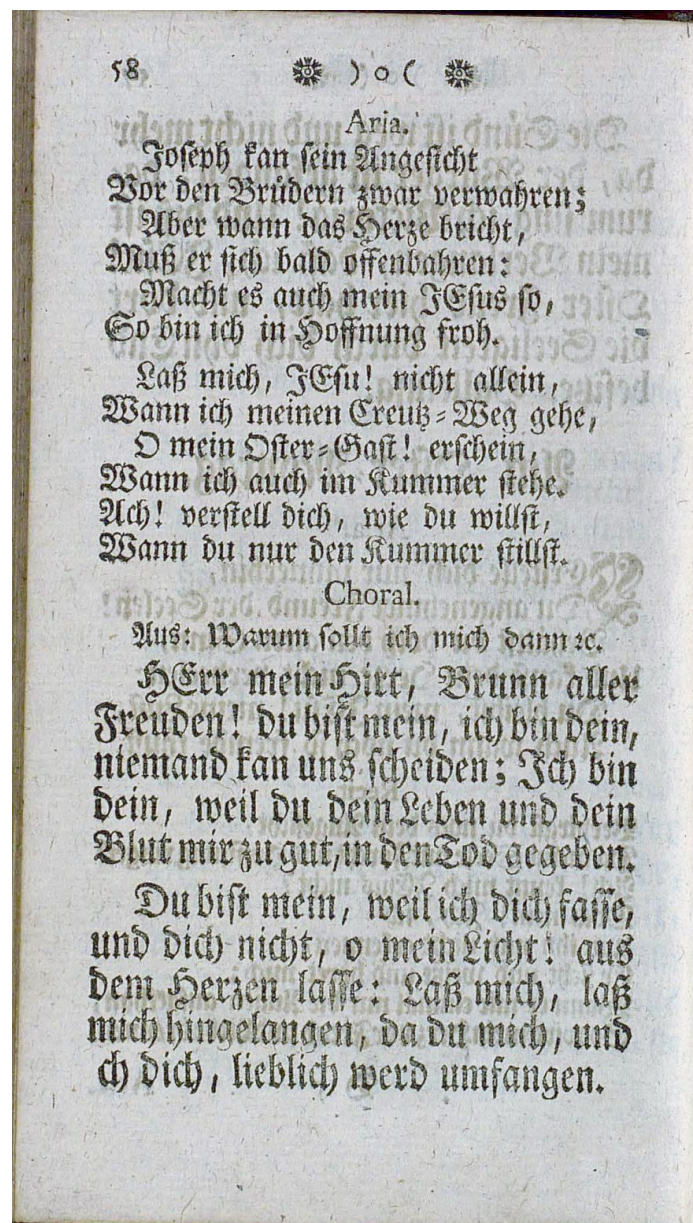 58 ❋ ) o ( ❋
Aria.
Joseph kan sein Angesicht
Vor den Brüdern zwar verwahren;
Aber wann das Herze bricht,
Muß er sich bald offenbahren:
Macht es auch mein JEsus so,
So bin ich in Hoffnung froh.
Laß mich, JEsu! nicht allein,
Wann ich meinen Creutz-Weg gehe,
O mein Oster-Gast! erschein,
Wann ich auch im Kummer stehe.
Ach! verstell dich, wie du willst,
Wann du nur den Kummer stillst.
Choral.
Aus: Warum sollt ich mich dann ꝛc.
HErr mein Hirt, Brunn aller
Freuden! du bist mein, ich bin dein,
niemand kan uns scheiden; Ich bin
dein, weil du dein Leben und dein
Blut mir zu gut, in den Tod gegeben.
Du bist mein, weil ich dich fasse,
und dich nicht, o mein Licht! aus
dem Herzen lasse: Laß mich, laß
mich hingelangen, da du mich, und
ch dich, lieblich werd umfangen.